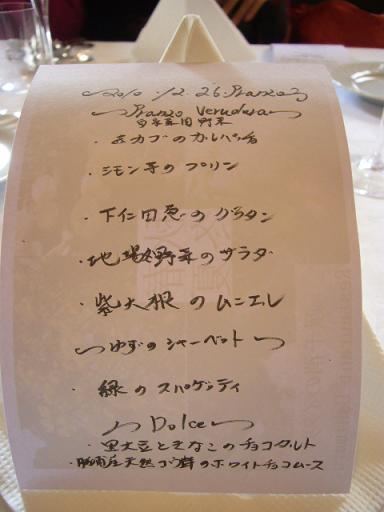 2010.12.26.Pranzo
Pranzo Verudura
自家菜園野菜
・赤カブのカルパッチョ
・シモン芋のプリン
・下仁田葱のグラタン
・地場野菜のサラダ
・紫大根のムニエル
ゆずのシャーベット
・緑のスパゲッティ
Dolce
・黒大豆ときなこのチョコタルト
天然 のホワイトチョコムース